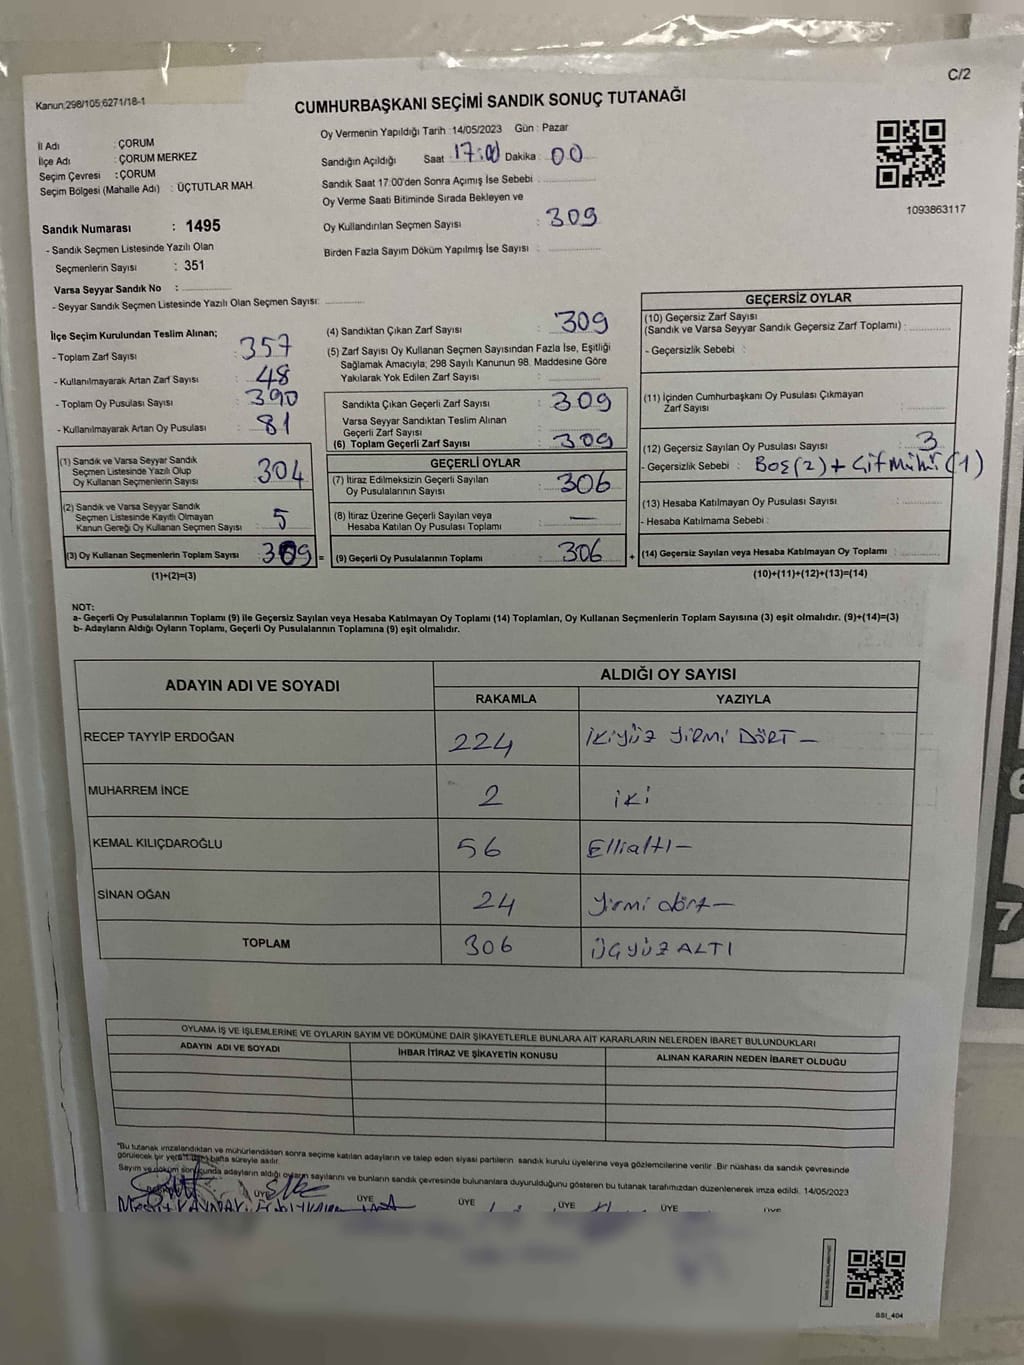 C/2
Kanun;298/105;6271/18-1
CUMHURBAŞKANI SEÇİMİ SANDIK SONUÇ TUTANAĞI
İl Adı : ÇORUM
İlçe Adı : ÇORUM MERKEZ
Seçim Çevresi : ÇORUM
Seçim Bölgesi (Mahalle Adı) : ÜÇTUTLAR MAH.
Sandık Numarası : 1495
- Sandık Seçmen Listesinde Yazılı Olan
Seçmenlerin Sayısı : 351
Varsa Seyyar Sandık No :
- Seyyar Sandık Seçmen Listesinde Yazılı Olan Seçmen Sayısı:
Oy Vermenin Yapıldığı Tarih : 14/05/2023 Gün : Pazar
Sandığın Açıldığı Saat 17:00 Dakika : 00
Sandık Saat 17:00'den Sonra Açımış İse Sebebi :
Oy Verme Saati Bitiminde Sırada Bekleyen ve
Oy Kullandırılan Seçmen Sayısı : 309
Birden Fazla Sayım Döküm Yapılmış İse Sayısı :
1093863117
İlçe Seçim Kurulundan Teslim Alınan;
- Toplam Zarf Sayısı : 357
- Kullanılmayarak Artan Zarf Sayısı : 48
- Toplam Oy Pusulası Sayısı : 390
- Kullanılmayarak Artan Oy Pusulası : 81
(1) Sandık ve Varsa Seyyar Sandık
Seçmen Listesinde Yazılı Olup
Oy Kullanan Seçmenlerin Sayısı : 304
(2) Sandık ve Varsa Seyyar Sandık
Seçmen Listesinde Kayıtlı Olmayan
Kanun Gereği Oy Kullanan Seçmen Sayısı : 5
(3) Oy Kullanan Seçmenlerin Toplam Sayısı : 309 =
(1)+(2)=(3)
(4) Sandıktan Çıkan Zarf Sayısı : 309
(5) Zarf Sayısı Oy Kullanan Seçmen Sayısından Fazla İse, Eşitliği
Sağlamak Amacıyla; 298 Sayılı Kanunun 98. Maddesine Göre
Yakılarak Yok Edilen Zarf Sayısı :
Sandıkta Çıkan Geçerli Zarf Sayısı : 309
Varsa Seyyar Sandıktan Teslim Alınan
Geçerli Zarf Sayısı :
(6) Toplam Geçerli Zarf Sayısı : 309
GEÇERLİ OYLAR
(7) İtiraz Edilmeksizin Geçerli Sayılan
Oy Pusulalarının Sayısı : 306
(8) İtiraz Üzerine Geçerli Sayılan veya
Hesaba Katılan Oy Pusulası Toplamı : —
(9) Geçerli Oy Pusulalarının Toplamı : 306 +
GEÇERSİZ OYLAR
(10) Geçersiz Zarf Sayısı
(Sandık ve Varsa Seyyar Sandık Geçersiz Zarf Toplamı) :
- Geçersizlik Sebebi :
(11) İçinden Cumhurbaşkanı Oy Pusulası Çıkmayan
Zarf Sayısı :
(12) Geçersiz Sayılan Oy Pusulası Sayısı : 3
- Geçersizlik Sebebi : Boş(2) + Çift mühür (1)
(13) Hesaba Katılmayan Oy Pusulası Sayısı :
- Hesaba Katılmama Sebebi :
(14) Geçersiz Sayılan veya Hesaba Katılmayan Oy Toplamı :
(10)+(11)+(12)+(13)=(14)
NOT:
a- Geçerli Oy Pusulalarının Toplamı (9) ile Geçersiz Sayılan veya Hesaba Katılmayan Oy Toplamı (14) Toplamları, Oy Kullanan Seçmenlerin Toplam Sayısına (3) eşit olmalıdır. (9)+(14)=(3)
b- Adayların Aldığı Oyların Toplamı, Geçerli Oy Pusulalarının Toplamına (9) eşit olmalıdır.
ADAYIN ADI VE SOYADI ALDIĞI OY SAYISI
RAKAMLA YAZIYLA
RECEP TAYYİP ERDOĞAN 224 İKİYÜZ YİRMİ DÖRT —
MUHARREM İNCE 2 iki
KEMAL KILIÇDAROĞLU 56 Ellialtı —
SİNAN OĞAN 24 yirmi dört —
TOPLAM 306 ÜÇYÜZ ALTI
OYLAMA İŞ VE İŞLEMLERİNE VE OYLARIN SAYIM VE DÖKÜMÜNE DAİR ŞİKAYETLERLE BUNLARA AİT KARARLARIN NELERDEN İBARET BULUNDUKLARI
ADAYIN ADI VE SOYADI İHBAR İTİRAZ VE ŞİKAYETİN KONUSU ALINAN KARARIN NEDEN İBARET OLDUĞU
*Bu tutanak imzalandıktan ve mühürlendikten sonra seçime katılan adayların ve talep eden siyasi partilerin sandık kurulu üyelerine veya gözlemcilerine verilir. Bir nüshası da sandık çevresinde
görülecek bir yere bir hafta süreyle asılır.
Sayım ve döküm sonucunda adayların aldığı oyların sayılarını ve bunların sandık çevresinde bulunanlara duyurulduğunu gösteren bu tutanak tarafımızdan düzenlenerek imza edildi. 14/05/2023
ÜYE ÜYE ÜYE ÜYE ÜYE ÜYE
SSI_404